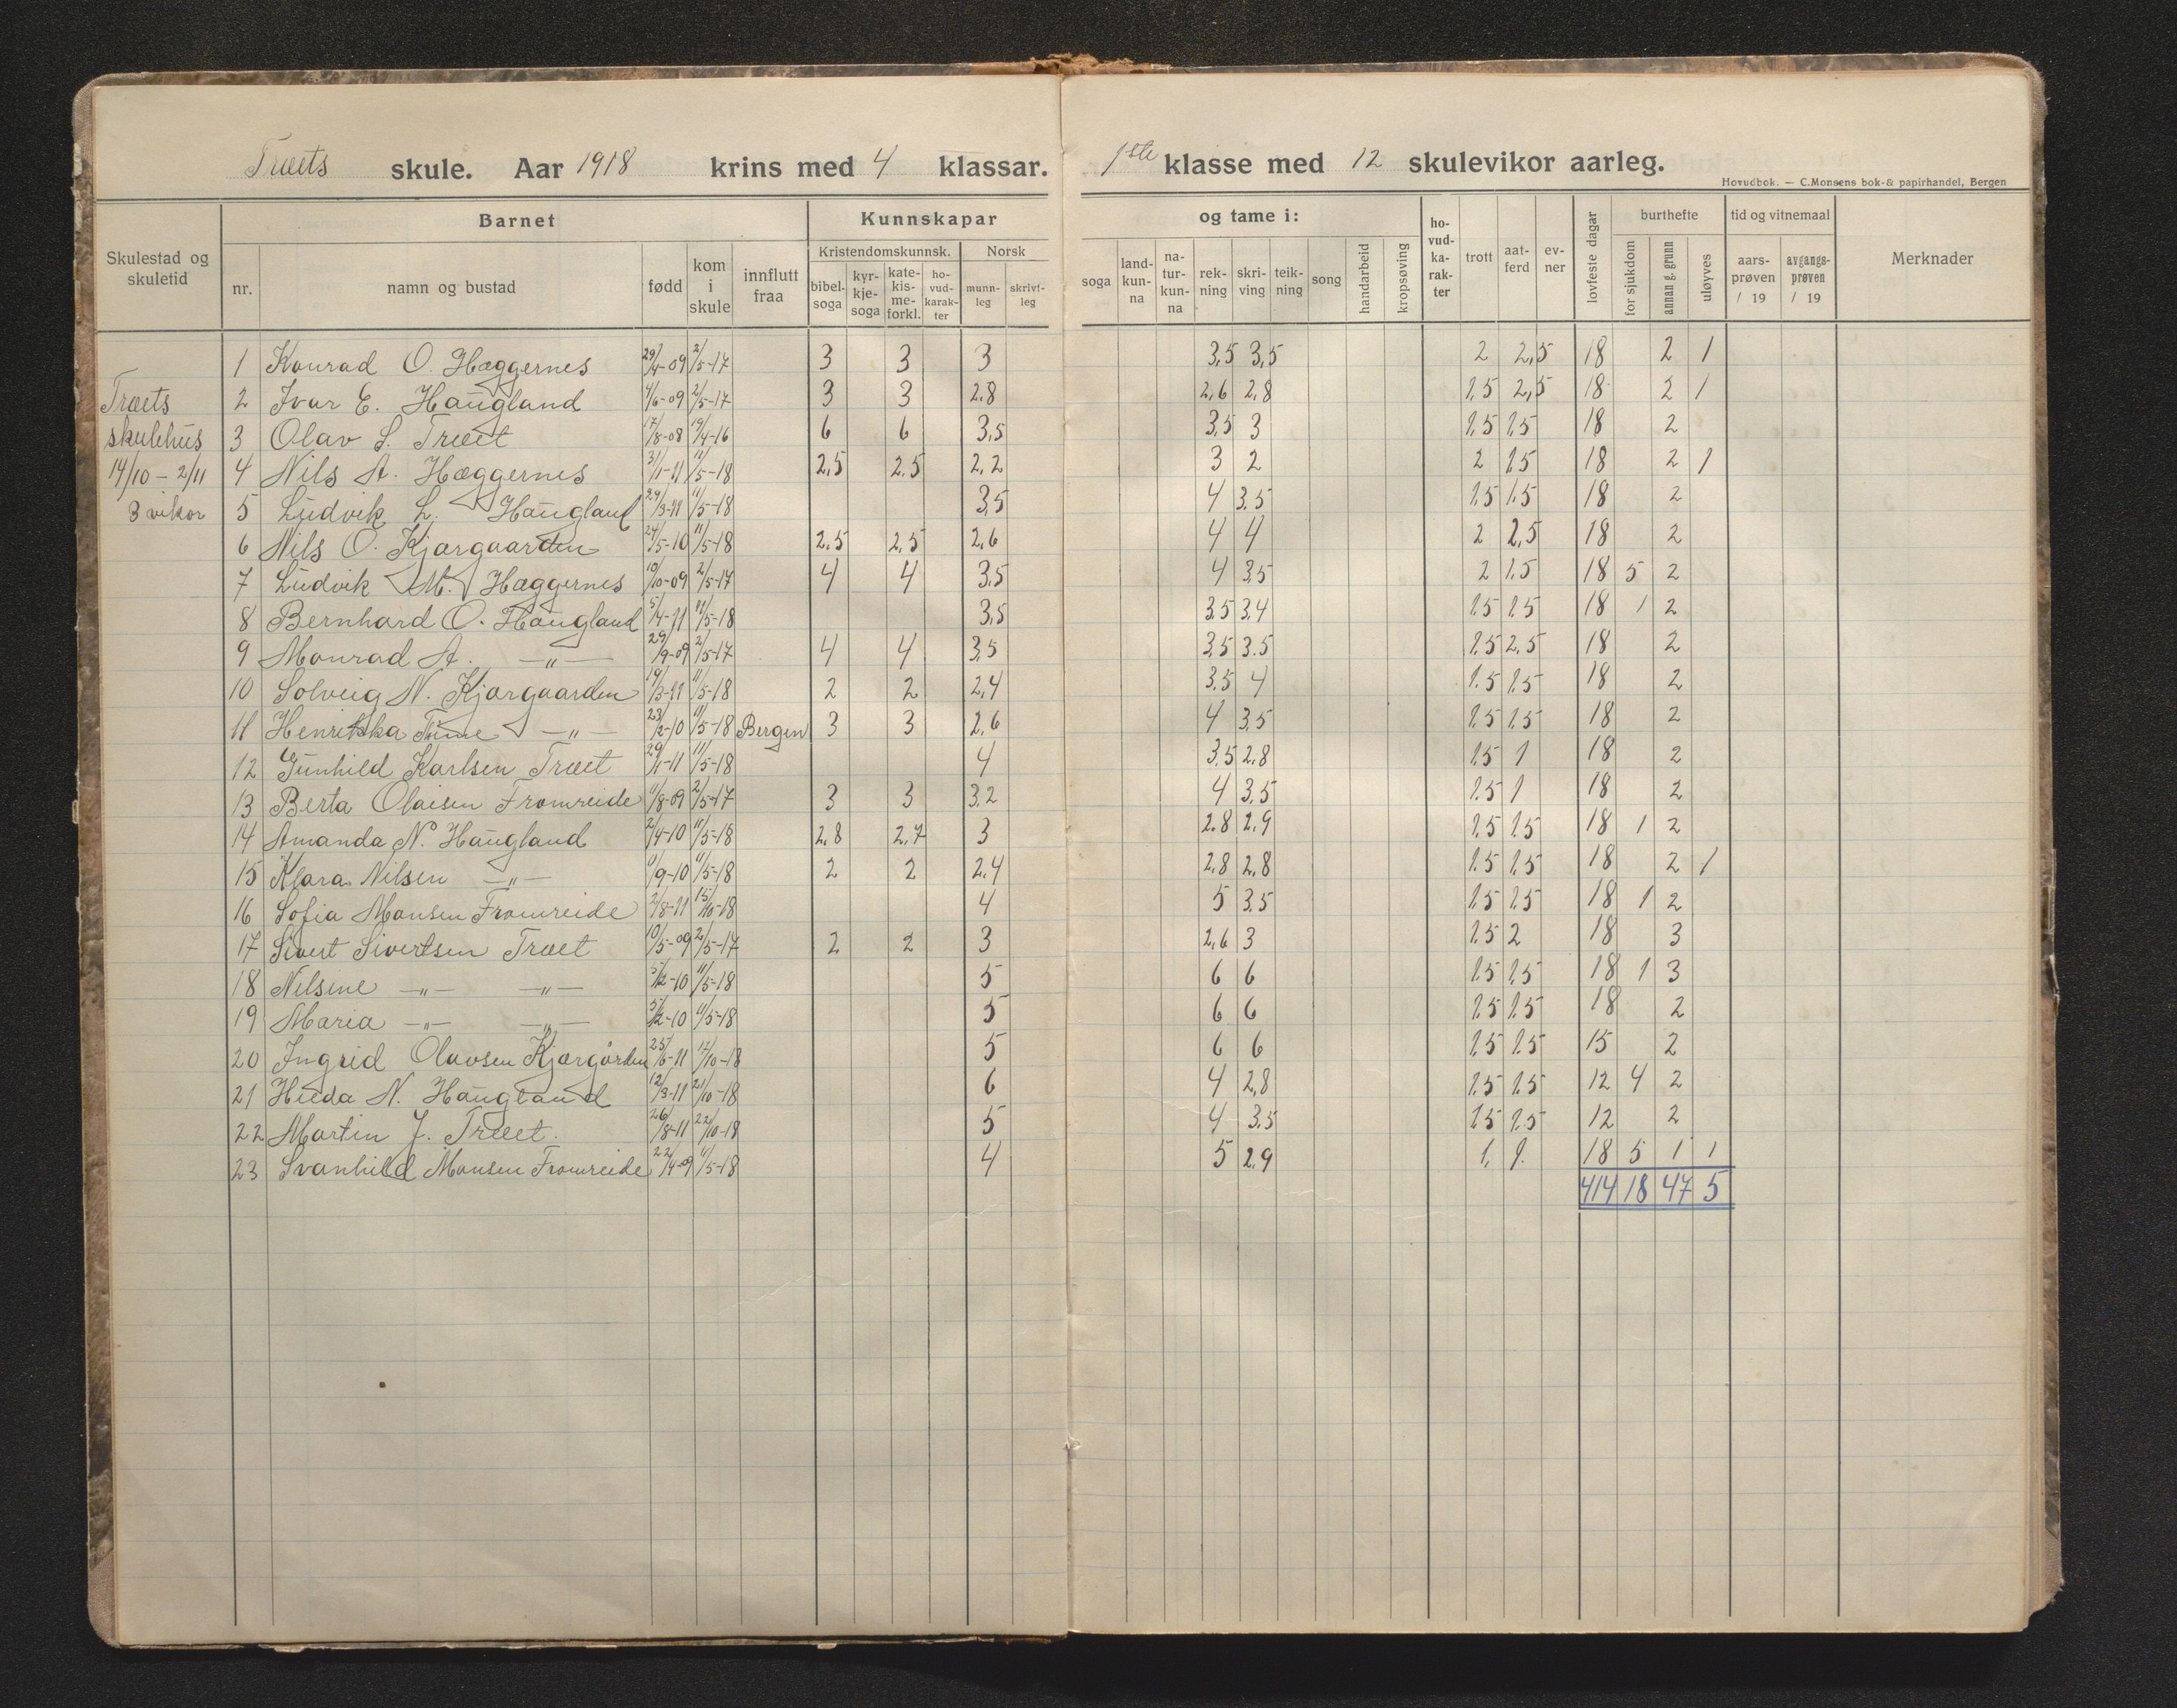 Træets skule. Aar 1918 krins med 4 klassar. 1ste klasse med 12 skulevikor aarleg.
Hovudbok. — C.Monsens bok-& papirhandel, Bergen
Skulestad og skuletid
Barnet
nr. namn og bustad fødd kom i skule innflutt fraa
Kunnskapar og tame i:
Kristendomskunnsk. Norsk
bibel-soga kyr-kje-soga kate-kis-me-forkl. ho-vud-karak-ter munn-leg skrivt-leg
soga land-kun-na na-tur-kun-na rek-ning skri-ving teik-ning song handarbeid kropsøving
ho-vud-ka-rak-ter trott aat-ferd ev-ner lovfeste dagar
burthefte
for sjukdom annan g. grunn uløyves
tid og vitnemaal
aars-prøven / 19 avgangs-prøven / 19
Merknader
Træets
skulehus
14/10 - 2/11
3 vikor
1 Konrad O. Hæggernes 29/4-09 2/5-17 3 3 3 3,5 3,5 2 2,5 18 2 1
2 Ivar E. Haugland 4/6-09 2/5-17 3 3 2.8 2,6 2,8 1,5 2,5 18 2 1
3 Olav S. Træet 17/8-08 19/4-16 6 6 3,5 3,5 3 1,5 1,5 18 2
4 Nils A. Hæggernes 31/1-11 11/5-18 2,5 2.5 2,2 3 2 2 1,5 18 2 1
5 Ludvik L. Haugland 29/3-11 11/5-18 3,5 4 3,5 1,5 1,5 18 2
6 Nils O. Kjærgaarden 24/5-10 11/5-18 2,5 2,5 2,6 4 4 2 2,5 18 2
7 Ludvik M. Hæggernes 10/10-09 2/5-17 4 4 3,5 4 3,5 2 1,5 18 5 2
8 Bernhard O. Haugland 5/4-11 11/5-18 3,5 3,5 3,4 1,5 1,5 18 1 2
9 Monrad A. —"— 29/9-09 2/5-17 4 4 3,5 3,5 3.5 1,5 2,5 18 2
10 Solveig N. Kjærgaarden 19/3-11 11/5-18 2 2 2,4 3,5 4 1.5 1,5 18 2
11 Henrikka Tume —"— 23/2-10 11/5-18 Bergen 3 3 2,6 4 3,5 1,5 1,5 18 2
12 Gunhild Karlsen Træet 29/1-11 11/5-18 4 3,5 2,8 1,5 1 18 2
13 Berta Olaisen Fromreide 11/8-09 2/5-17 3 3 3,2 4 3,5 1,5 1 18 2
14 Amanda N. Haugland 2/4-10 11/5-18 2,8 2,7 3 2.8 2,9 1,5 1,5 18 1 2
15 Klara Nilsen —"— 11/9-10 11/5-18 2 2 2,4 2,8 2,8 1,5 1,5 18 2 1
16 Sofia Monsen Fromreide 2/8-11 15/10-18 4 5 3,5 1,5 1,5 18 1 2
17 Sivert Sivertsen Træet 10/5-09 2/5-17 2 2 3 2,6 3 1,5 2 18 3
18 Nilsine —"— —"— 5/12-10 11/5-18 5 6 6 1,5 1,5 18 1 3
19 Maria —"— —"— 5/12-10 11/5-18 5 6 6 1,5 1,5 18 2
20 Ingrid Olavsen Kjærgården 25/6-11 17/10-18 5 6 6 1,5 1.5 15 2
21 Hilda N. Haugland 12/3-11 21/10-18 6 4 2,8 1,5 1,5 12 4 2
22 Martin J. Træet. 26/8-11 22/10-18 5 4 3,5 1,5 1,5 12 2
23 Svanhild Monsen Fromreide 22/4-09 11/5-18 4 5 2,9 1, 1. 18 5 1 1
414 18 47 5